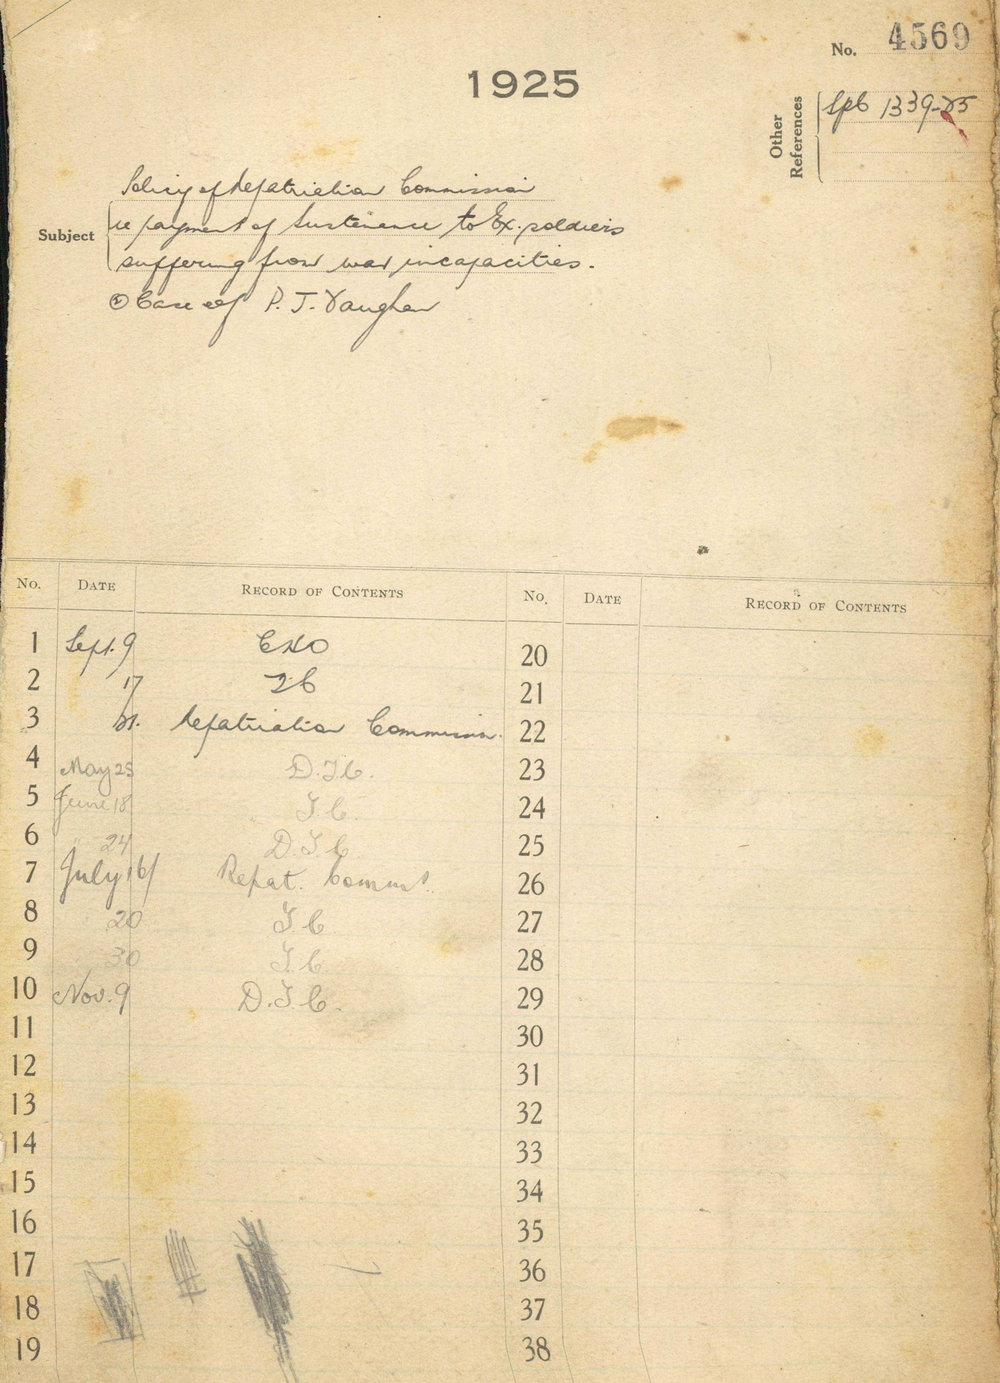 No. 4569
1925
Other References
Spb 1339-25
Subject
Policy of Repatriation Commission
re payment of Sustenance to Ex. soldiers
suffering from war incapacities.
② Case of P. J. Vaughan
No. DATE RECORD OF CONTENTS No. DATE RECORD OF CONTENTS
1 Sept. 9
2 17
3 Repatriation Commission.
4 May 25 D.T.C.
5 June 18 T.C.
6 " 24 D.T.C.
7 July 16/ Repat. Comms.
8 20 T.C.
9 30 T.C.
10 Nov. 9 D.T.C.
11
12
13
14
15
16
17
18
19
20
21
22
23
24
25
26
27
28
29
30
31
32
33
34
35
36
37
38